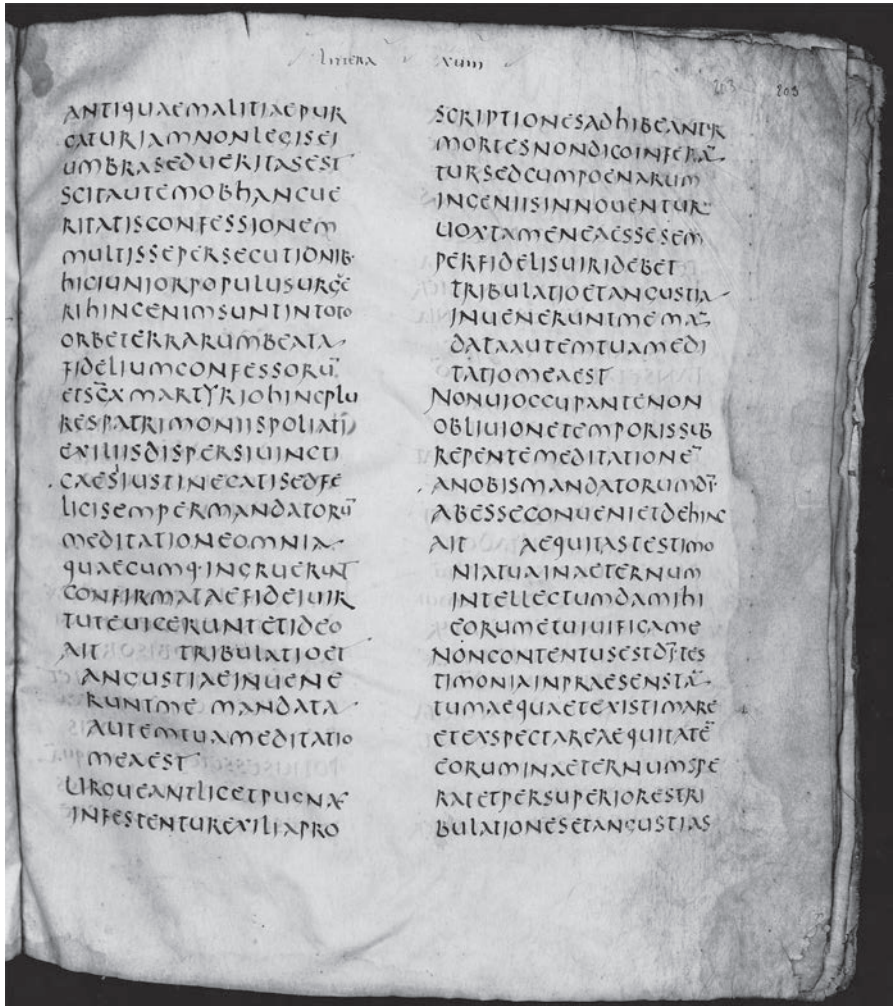 LITTERA XVIII
203 203
ANTIQUAEMALITIAEPUR
GATURIAMNONLEGISEI
UMBRASEDUERITASEST
SCITAUTEMOBHANCUE
RITATISCONFESSIONEM
MULTISSEPERSECUTIONIB·
HICIUNIORPOPULUSURGE
RIHINCENIMSUNTINTOTO
ORBETERRARUMBEATA
FIDELIUMCONFESSORŪ
ETSC̄AMARTYRIOHINCPLU
RESPATRIMONIISPOLIATI
EXILIISDISPERSIUINCTI
CAESIUSTINECATISEDFE
LICISEMPERMANDATORŪ
MEDITATIONEOMNIA
QUAECUMQ·INGRUERUNT
CONFIRMATAEFIDEIUIR
TUTEUICERUNTETIDEO
AIT TRIBULATIOET
ANGUSTIAEINUENE
RUNTME MANDATA
AUTEMTUAMEDITATIO
MEAEST
URGUEANTLICETPUGNAE
INFESTENTUREXILIAPRO
SCRIPTIONESADHIBEANTUR
MORTESNONDICOINFERAN̄
TURSEDCUMPOENARUM
INGENIISINNOUENTUR
UOXTAMENEAESSESEM
PERFIDELISUIRIDEBET
TRIBULATIOETANGUSTIA
INUENERUNTMEMAN̄
DATAAUTEMTUAMEDI
TATIOMEAEST
NONUIOCCUPANTENON
OBLIUIONETEMPORISSUB
REPENTEMEDITATIONĒ
ANOBISMANDATORUMDĪ·
ABESSECONUENIETDEHINC
AIT AEQUITASTESTIMO
NIATUAINAETERNUM
INTELLECTUMDAMIHI
EORUMETUIUIFICAME
NONCONTENTUSESTDĪTES
TIMONIAINPRAESENSTAN̄
TUMAEQUAETEXISTIMARE
ETEXSPECTAREAEQUITATĒ
EORUMINAETERNUMSPE
RATETPERSUPERIORESTRI
BULATIONESETANGUSTIAS